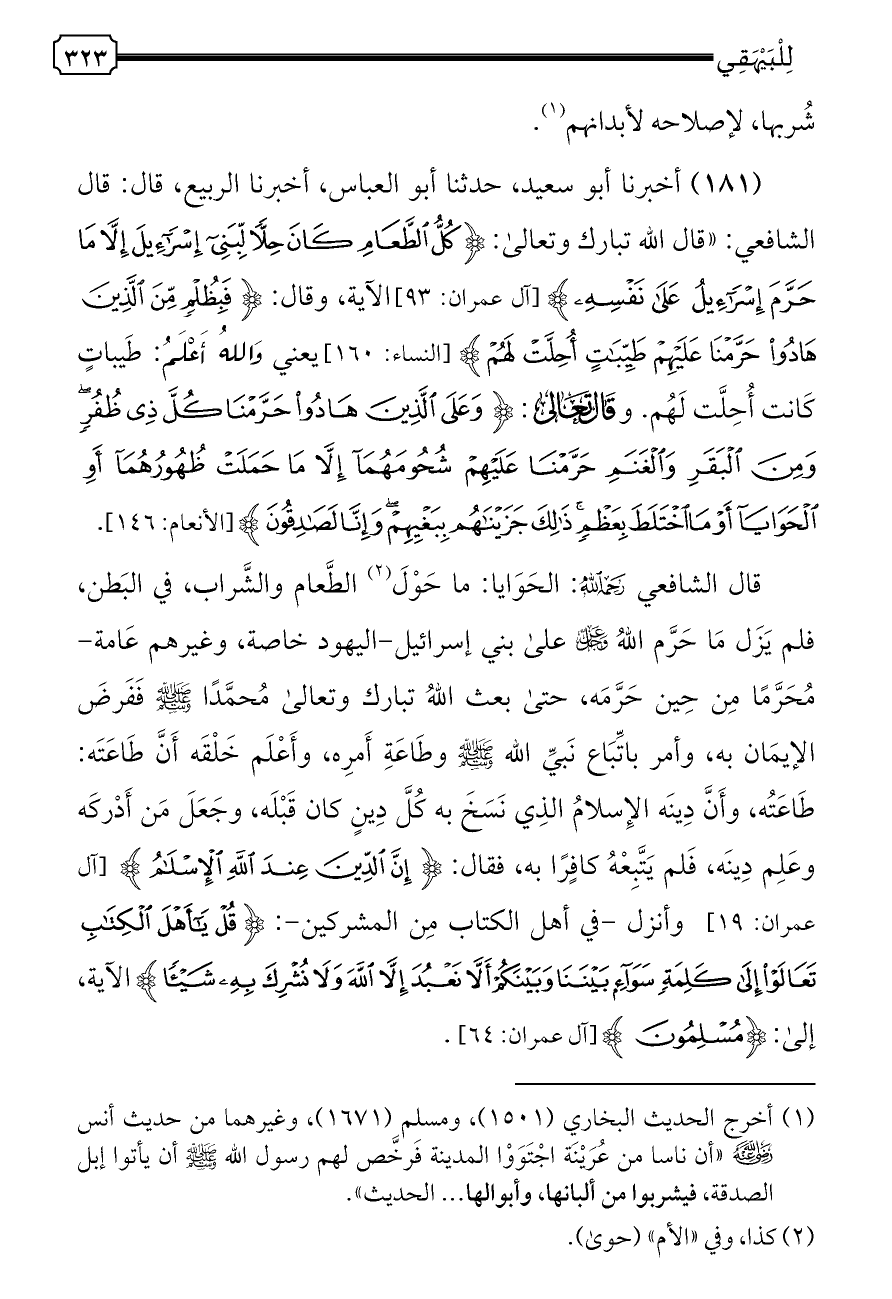 لِلْبَيْهَقِي ٣٢٣
شُربها، لإصلاحه لأبدانهم(١).
(١٨١) أخبرنا أبو سعيد، حدثنا أبو العباس، أخبرنا الربيع، قال: قال
الشافعي: «قال الله تبارك وتعالىٰ: ﴿كُلُّ ٱلطَّعَامِ كَانَ حِلًّا لِّبَنِيٓ إِسْرَٰٓءِيلَ إِلَّا مَا
حَرَّمَ إِسْرَٰٓءِيلُ عَلَىٰ نَفْسِهِۦ﴾ [آل عمران: ٩٣] الآية، وقال: ﴿فَبِظُلْمٍ مِّنَ ٱلَّذِينَ
هَادُوا۟ حَرَّمْنَا عَلَيْهِمْ طَيِّبَٰتٍ أُحِلَّتْ لَهُمْ﴾ [النساء: ١٦٠] يعني واللهُ أَعْلَمُ: طَيباتٍ
كَانت أُحِلَّت لَهُم. وقَالَ تَعَالَىٰ: ﴿وَعَلَى ٱلَّذِينَ هَادُوا۟ حَرَّمْنَا كُلَّ ذِى ظُفُرٍۖ
وَمِنَ ٱلْبَقَرِ وَٱلْغَنَمِ حَرَّمْنَا عَلَيْهِمْ شُحُومَهُمَآ إِلَّا مَا حَمَلَتْ ظُهُورُهُمَآ أَوِ
ٱلْحَوَايَآ أَوْ مَا ٱخْتَلَطَ بِعَظْمٍۚ ذَٰلِكَ جَزَيْنَٰهُم بِبَغْيِهِمْۖ وَإِنَّا لَصَٰدِقُونَ﴾ [الأنعام: ١٤٦].
قال الشافعي رَحِمَهُ ٱللَّهُ: الحَوَايا: ما حَوْلَ(٢) الطَّعام والشَّراب، في البَطن،
فلم يَزَل مَا حَرَّم اللهُ عَزَّوَجَلَّ علىٰ بني إسرائيل-اليهود خاصة، وغيرهم عَامة-
مُحَرَّمًا مِن حِين حَرَّمَه، حتىٰ بعث اللهُ تبارك وتعالىٰ مُحمَّدًا ﷺ فَفَرضَ
الإيمَان به، وأمر باتِّبَاع نَبيِّ الله ﷺ وطَاعَةِ أَمرِه، وأَعْلَم خَلْقَه أَنَّ طَاعَتَه:
طَاعَتُه، وأَنَّ دِينَه الإِسلامُ الذِي نَسَخَ به كُلَّ دِينٍ كان قَبْلَه، وجَعَلَ مَن أَدْركَه
وعَلِم دِينَه، فَلم يَتَّبِعْهُ كافِرًا به، فقال: ﴿إِنَّ ٱلدِّينَ عِندَ ٱللَّهِ ٱلْإِسْلَٰمُ﴾ [آل
عمران: ١٩] وأنزل -في أهل الكتاب مِن المشركين-: ﴿قُلْ يَٰٓأَهْلَ ٱلْكِتَٰبِ
تَعَالَوْا۟ إِلَىٰ كَلِمَةٍ سَوَآءٍۭ بَيْنَنَا وَبَيْنَكُمْ أَلَّا نَعْبُدَ إِلَّا ٱللَّهَ وَلَا نُشْرِكَ بِهِۦ شَيْـًٔا﴾ الآية،
إلىٰ: ﴿مُسْلِمُونَ﴾ [آل عمران: ٦٤].
(١) أخرج الحديث البخاري (١٥٠١)، ومسلم (١٦٧١)، وغيرهما من حديث أنس
رَضِيَ ٱللَّهُ عَنْهُ «أن ناسا من عُرَيْنَة اجْتَوَوْا المدينة فَرخَّص لهم رسول الله ﷺ أن يأتوا إبل
الصدقة، فيشربوا من ألبانها، وأبوالها... الحديث».
(٢) كذا، وفي «الأم» (حوىٰ).